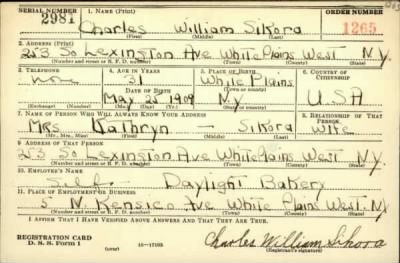 SERIAL NUMBER 1. NAME (Print) ORDER NUMBER
2981 Charles William Sikora 1265
(First) (Middle) (Last)
2. ADDRESS (Print)
253 So Lexington Ave White Plains West N.Y.
(Number and street or R. F. D. number) (Town) (County) (State)
3. TELEPHONE 4. AGE IN YEARS 5. PLACE OF BIRTH 6. COUNTRY OF CITIZENSHIP
none 31 White Plains
(Town or county)
DATE OF BIRTH
May 25 1909 N.Y. U.S.A
(Exchange) (Number) (Mo.) (Day) (Yr.) (State or country)
7. NAME OF PERSON WHO WILL ALWAYS KNOW YOUR ADDRESS 8. RELATIONSHIP OF THAT PERSON
Mrs Kathryn — Sikora Wife
(Mr., Mrs., Miss) (First) (Middle) (Last)
9. ADDRESS OF THAT PERSON
253 So Lexington Ave White Plains West N.Y.
(Number and street or R. F. D. number) (Town) (County) (State)
10. EMPLOYER'S NAME
Self Daylight Bakery
11. PLACE OF EMPLOYMENT OR BUSINESS
5 N. Kensico Ave White Plains West. N.Y
(Number and street or R. F. D. number) (Town) (County) (State)
I AFFIRM THAT I HAVE VERIFIED ABOVE ANSWERS AND THAT THEY ARE TRUE.
REGISTRATION CARD
D. S. S. Form 1 16—17105 Charles William Sikora
(Registrant's signature)